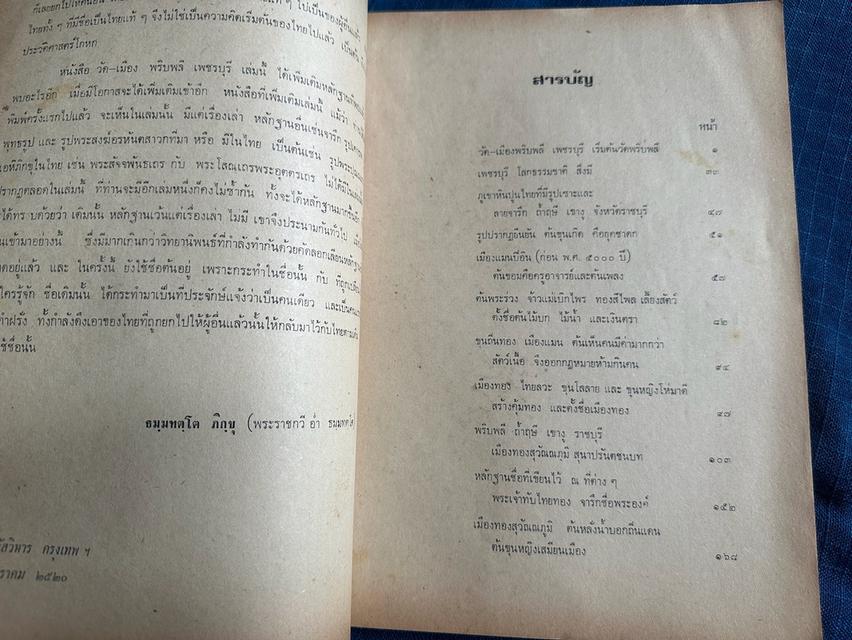 ไทยทั้ง ๆ ที่มีชื่อเป็นไทยแท้ ๆ จึงไม่ใช่เป็นความคิดเริ่มต้นของไทยไปแล้ว
ประวัติศาสตร์โกหก
หนังสือ วัด–เมือง พริบพลี เพชรบุรี เล่มนี้ ได้เพิ่มเติมหลักฐาน
พบอะไรอีก เมื่อมีโอกาสจะได้เพิ่มเติมเข้าอีก หนังสือที่เพิ่มเติมเล่มนี้ แม้ว่า
พิมพ์ครั้งแรกไปแล้ว จะเห็นในเล่มนั้น มีแต่เรื่องเล่า หลักฐานอื่นเช่นจารึก
พุทธรูป และ รูปพระสงฆ์อรหันตสาวกที่มา หรือ มีในไทย เป็นต้นเช่น
ภิกขุในไทย เช่น พระสัจจพันธเถร กับ พระโสณเถรพระอุตตรเถร ไม่ได้มี
ปรากฏตลอดในเล่มนี้ ที่ท่านจะมีอีกเล่มหนึ่งก็คงไม่ซ้ำกัน ทั้งจะได้หลักฐานมาก
ได้ทราบด้วยว่า เดิมนั้น หลักฐานเว้นแต่เรื่องเล่า ไม่มี เขาจึงประนามกันทั่วไป
เข้ามาอย่างนี้ ซึ่งมีมากเกินกว่าวิทยานิพนธ์ที่กำลังทำกันด้วยคัดลอกเลียน
อยู่แล้ว และ ในครั้งนี้ ยังใช้ชื่อต้นอยู่ เพราะกระทำในชื่อนั้น กับ ที่ถูก
ใครรู้จัก ชื่อเดิมนั้น ได้กระทำมาเป็นที่ประจักษ์แจ้งว่าเป็นคนเดียว
ฝรั่ง ทั้งกำลังดึงเอาของไทยที่ถูกยกไปให้ผู้อื่นแล้วนั้นให้กลับมาไว้กับไทย
ชื่อนั้น
ธมฺมทตฺโต ภิกฺขุ (พระราชกวี อ่ำ
วิหาร กรุงเทพ ฯ
๒๕๒๐
สารบัญ
หน้า
วัด–เมืองพริบพลี เพชรบุรี เริ่มต้นวัดพริบพลี ๑
เพชรบุรี โลกธรรมชาติ สิ่งมี ๓๓
ภูเขาหินปูนไทยที่มีรูปเซาะและ
ลายจารึก ถ้ำฤษี เขางู จังหวัดราชบุรี ๔๗
รูปปรากฏยืนยัน ต้นขุนเกิด คืออุตชาตก ๕๑
เมืองแมนบี่อิน (ก่อน พ.ศ. ๕๐๐๐ ปี)
ต้นขอมคือครูอาจารย์และต้นเพลง ๕๗
ต้นพระรวง จ้าวแม่เบิกไพร ทองสีไพล เลี้ยงสัตว์
ตั้งชื่อต้นไม้บก ไม้น้ำ และเงินตรา ๘๒
ขุนถินทอง เมืองแมน ต้นเห็นคนมีค่ามากกว่า
สัตว์เนื้อ จึงออกกฎหมายห้ามกินคน ๙๔
เมืองทอง ไทยลวะ ขุนโสลาย และ ขุนหญิงโห่มาดี
สร้างคุ้มทอง และตั้งชื่อเมืองทอง ๙๗
พริบพลี ถ้ำฤษี เขางู ราชบุรี
เมืองทองสุวัณณภูมิ สุนาปรันตชนบท ๑๐๓
หลักฐานชื่อที่เขียนไว้ ณ ที่ต่าง ๆ
พระเจ้าทับไทยทอง จารึกชื่อพระองค์ ๑๕๒
เมืองทองสุวัณณภูมิ ต้นหลั่งน้ำบอกถิ่นแคน
ต้นขุนหญิงเสมียนเมือง ๑๖๘